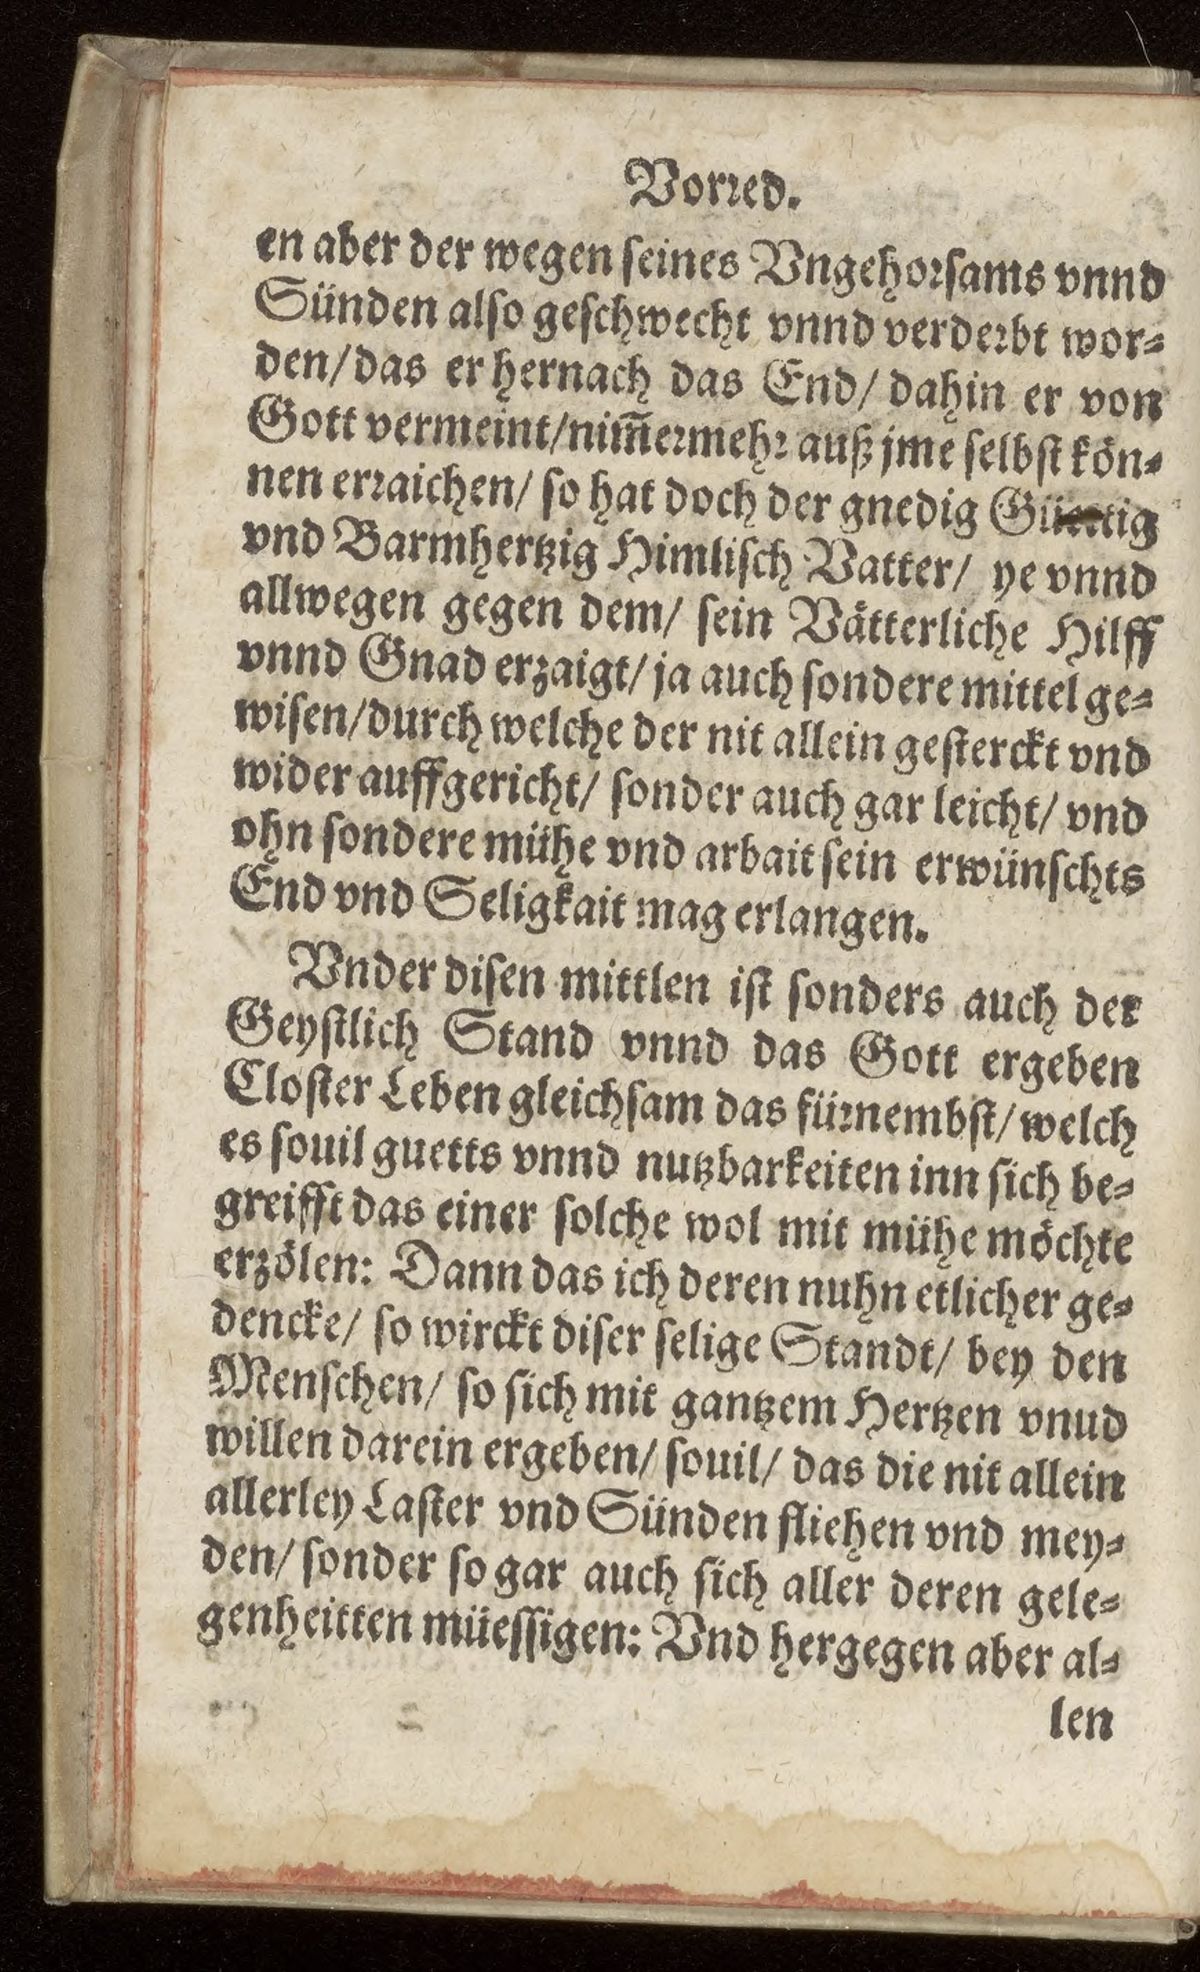 Vorꝛed.
en aber der wegen ſeines Vngehoꝛſams vnnd
Sünden alſo geſchwecht vnnd verdeꝛbt wor⸗
den/das er hernach das End/ dahin er von
Gott vermeint/nim̃eꝛmehꝛ auß jme ſelbſt koͤn⸗
nen erꝛaichen/ ſo hat doch der gnedig
vnd Barmhertzig Himliſch Vatter/ ye vnnd
allwegen gegen dem/ ſein Vaͤtterliche Hilff
vnnd Gnad erzaigt/ ja auch ſondere mittel ge⸗
wiſen/durch welche der nit allein geſterckt vnd
wider auffgericht/ ſonder auch gar leicht/ vnd
ohn ſondere mühe vnd arbait ſein erwünſchts
End vnd Seligkait mag erlangen.
Vnder diſen mittlen iſt ſonders auch der
Geyſtlich Stand vnnd das Gott ergeben
Cloſter Leben gleichſam das füꝛnembſt/ welch
es ſouil guetts vnnd nutzbarkeiten inn ſich be⸗
greifft das einer ſolche wol mit mühe moͤchte
erzoͤlen: Dann das ich deren nuhn etlicher ge⸗
dencke/ ſo wirckt diſer ſelige Standt/ bey den
Menſchen/ ſo ſich mit gantzem Hertzen vnud
willen darein ergeben/ ſouil/ das die nit allein
allerley Laſter vnd Sünden fliehen vnd mey⸗
den/ ſonder ſo gar auch ſich aller deren gele⸗
genheitten müeſſigen: Vnd hergegen aber al⸗
len